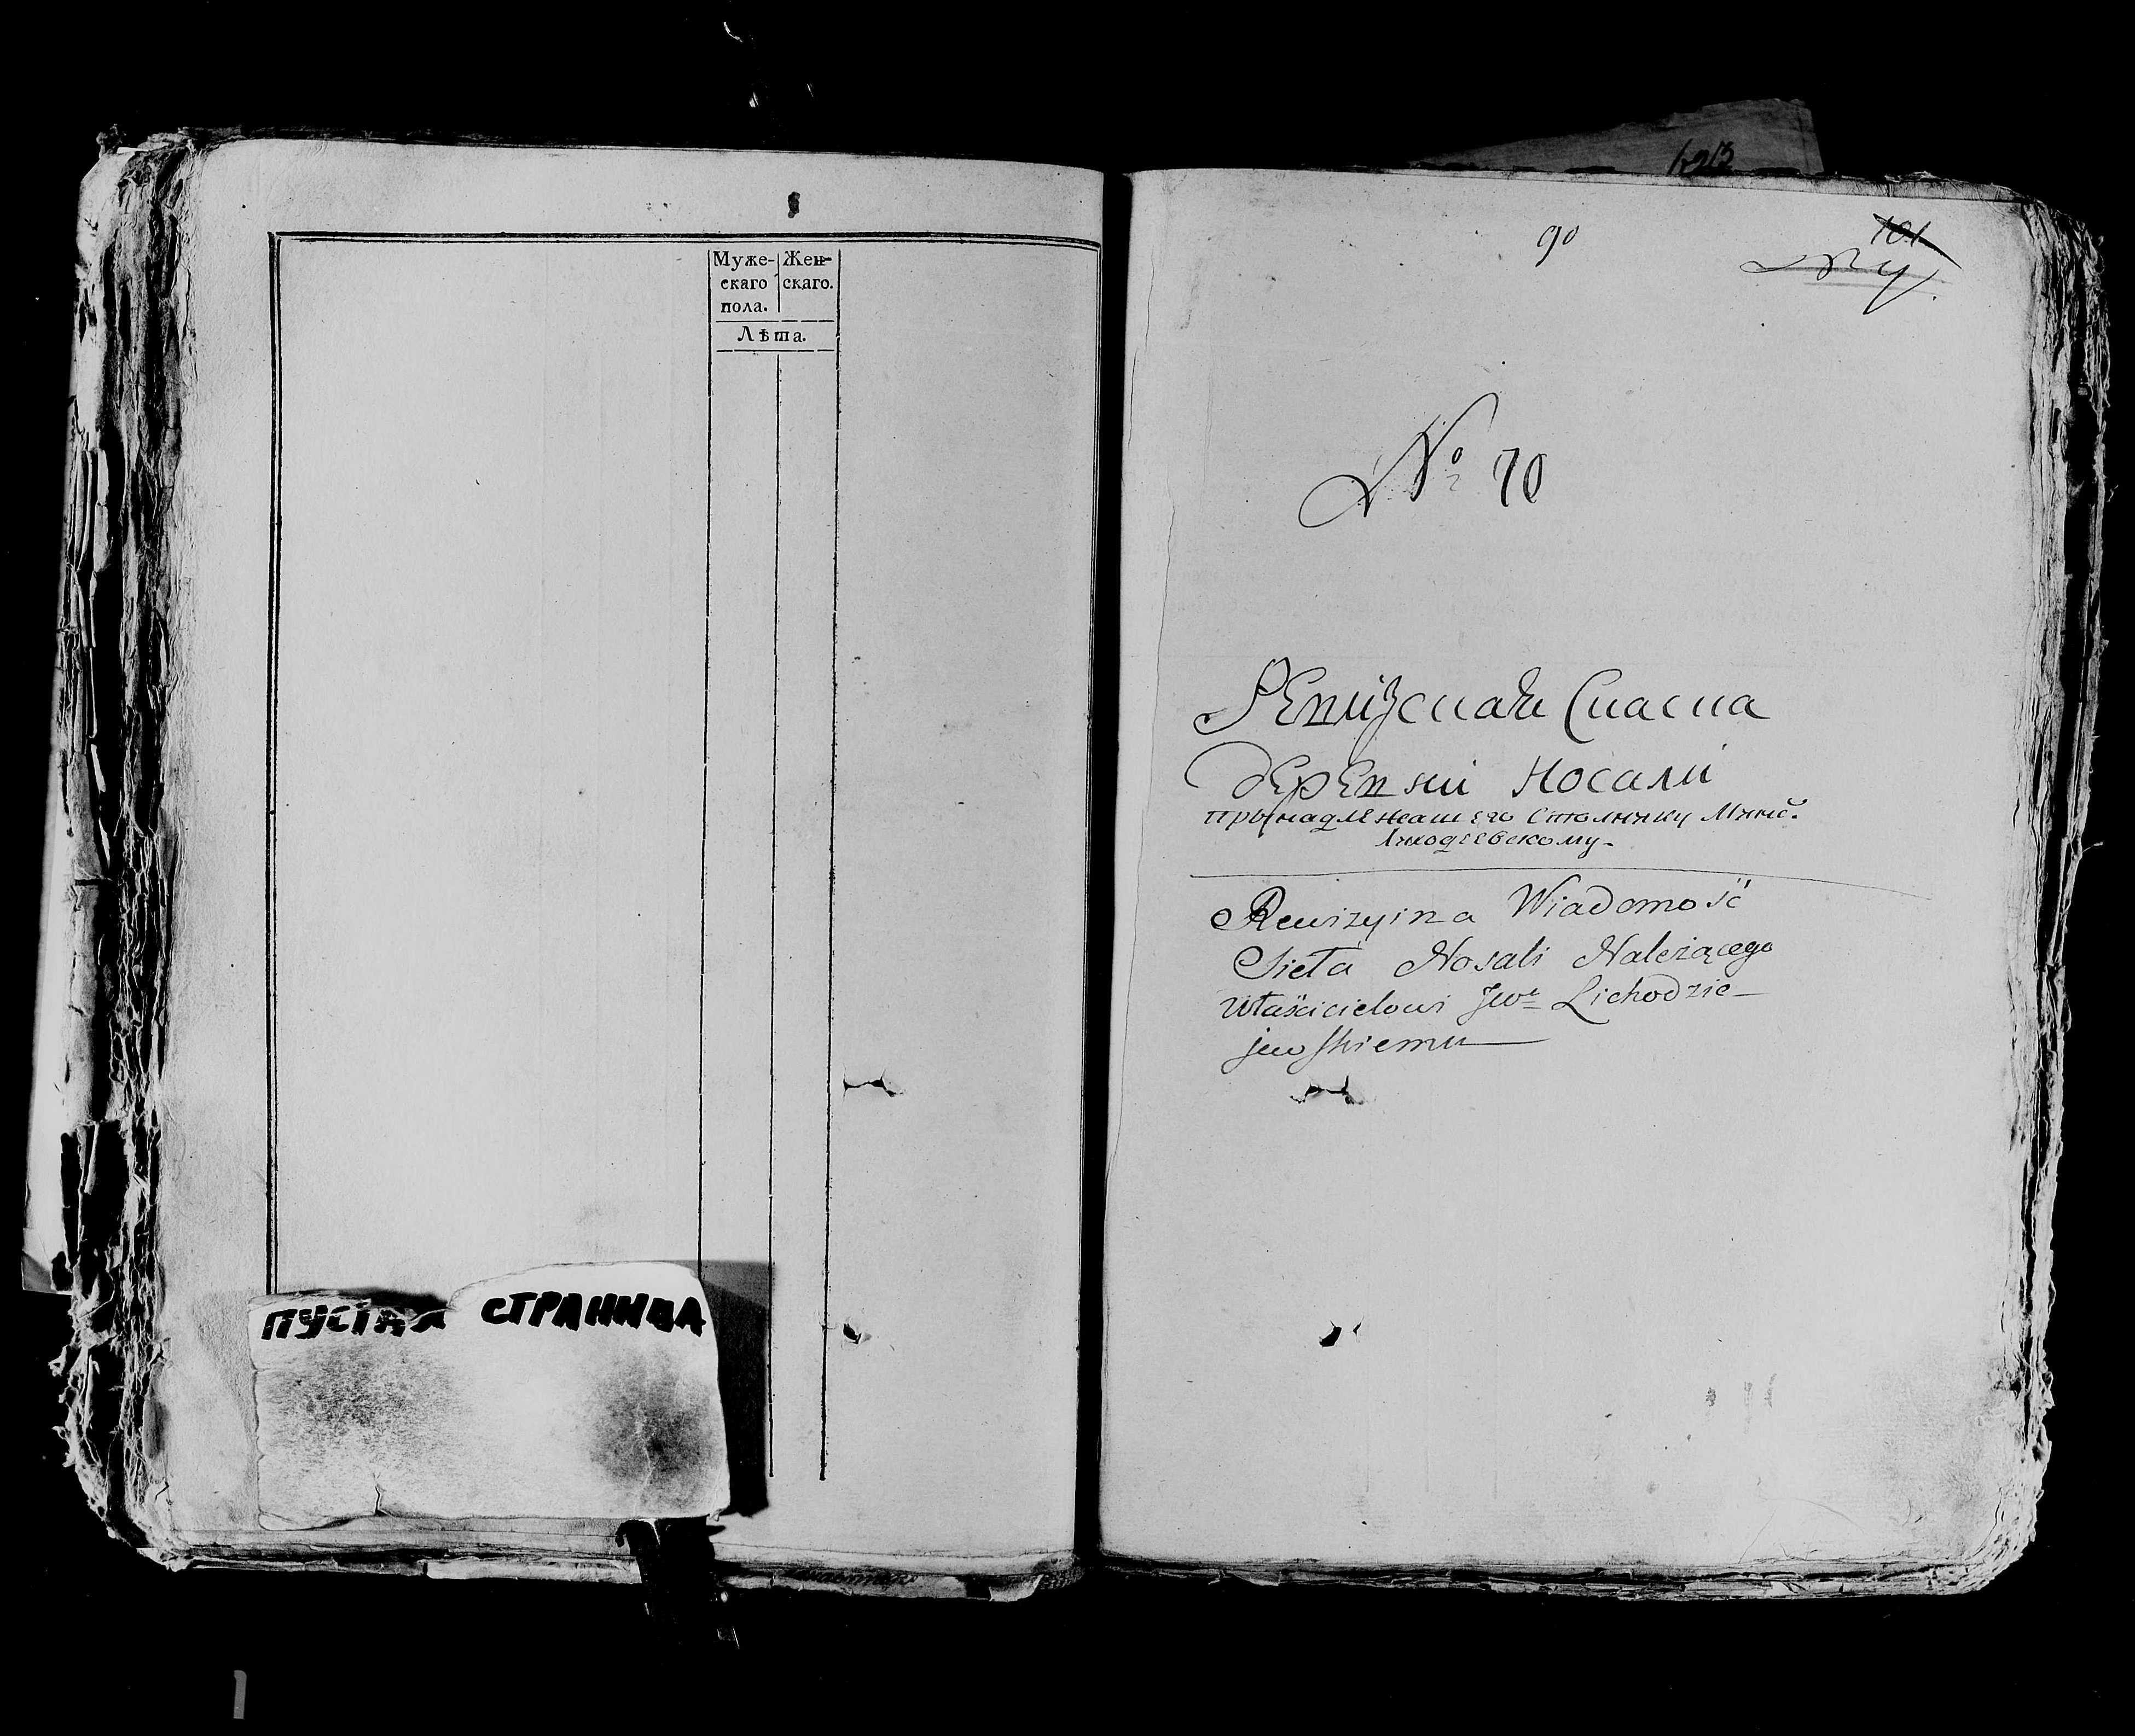 Муже- Жен-
скаго скаго.
пола.
Лѣта.
ПУСТАЯ СТРАНИЦА
90
101
№ 70
Ревизская Скаска
деревни Носали
прынадлежашего Столнику Минс.
Лиходзевскому
Rewizyina Wiadomość
Sieła Nosali Nalezącego
Właścicielowi Jwo Lichodzie-
jewskiemu